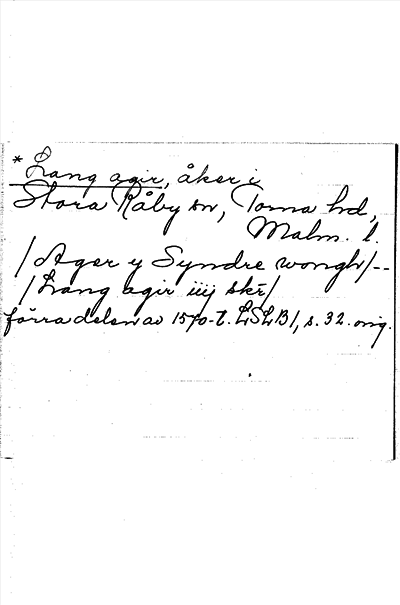 * Lang agir, åker i
Stora Råby sn, Torna hd,
Malm. l.
/Ager y Syndre wongh/--
/Lang agir iiij skr/
förra delen av 1570-t. LSLB1, s. 32. orig.